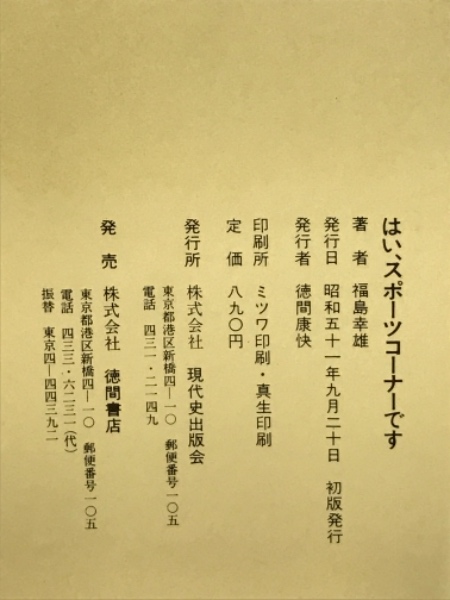 はい、スポーツコーナーです
著　者　福島幸雄
発行日　昭和五十一年九月二十日　初版発行
発行者　徳間康快
印刷所　ミツワ印刷・真生印刷
定　価　八九〇円
発行所　株式会社　現代史出版会
東京都港区新橋四―一〇　郵便番号一〇五
電話　四三一・二一四九
発　売　株式会社　徳間書店
東京都港区新橋四―一〇　郵便番号一〇五
電話　四三三・六二三一(代)
振替　東京四―四四三九二